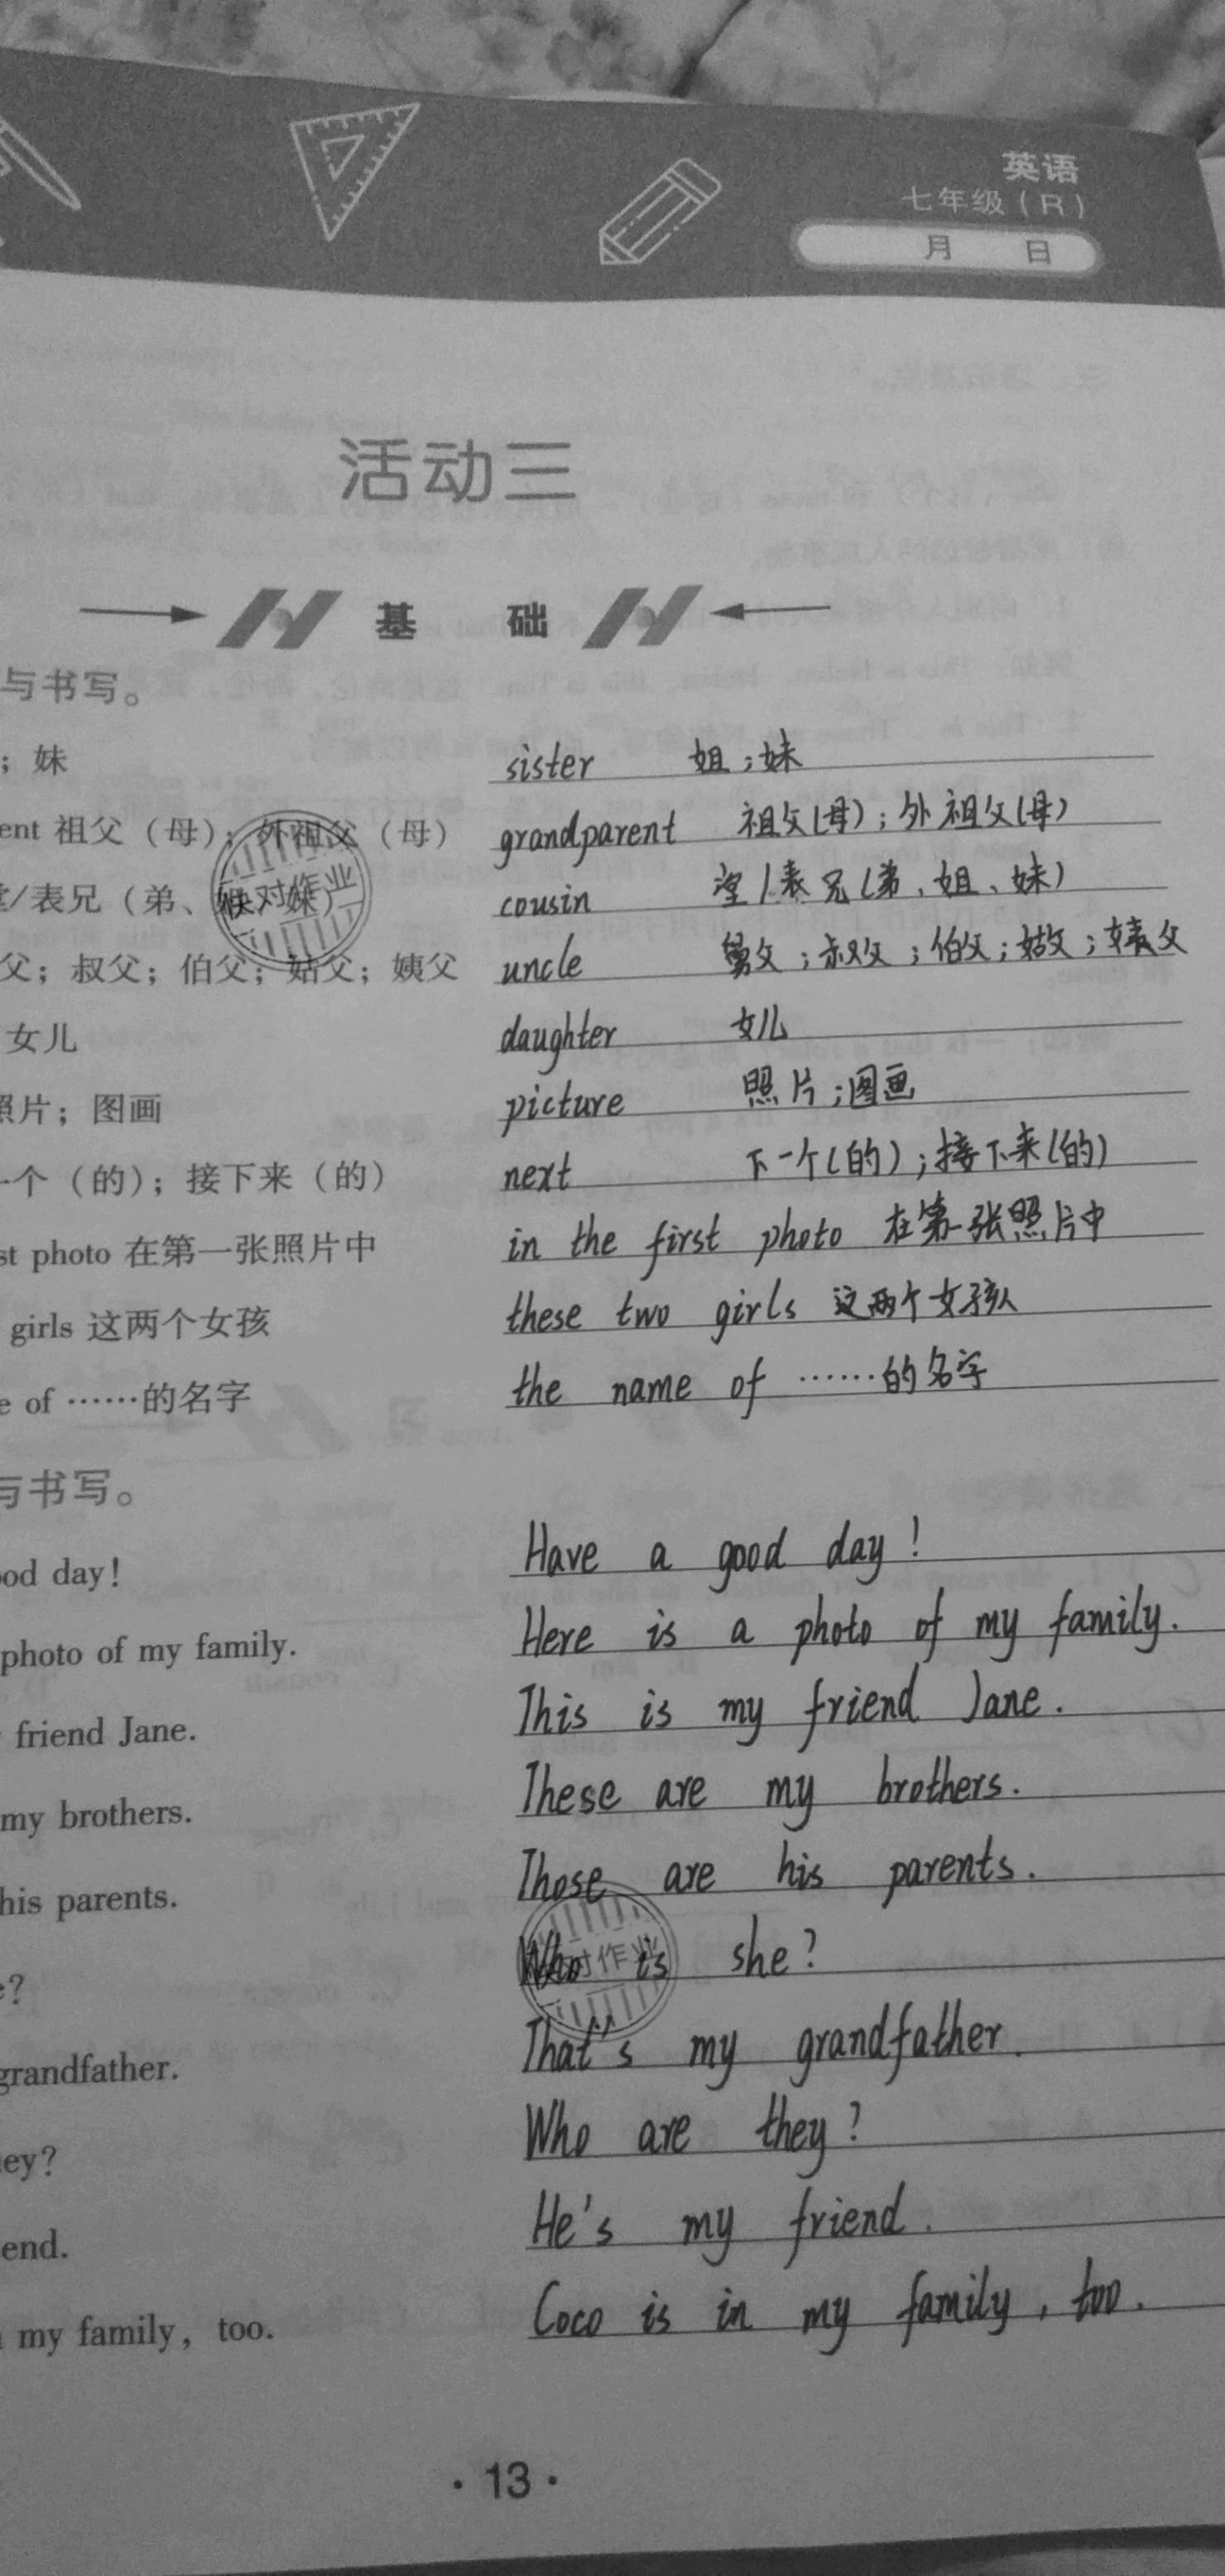 英语
七年级（R）
月 日
活动三
基 础
与书写。
；妹 sister 姐；妹
ent 祖父（母）；外祖父（母） grandparent 祖父(母)；外祖父(母)
/表兄（弟、姐、妹） cousin 堂/表兄(弟、姐、妹)
快对作业
父；叔父；伯父；姑父；姨父 uncle 舅父；叔父；伯父；姑父；姨父
女儿 daughter 女儿
照片；图画 picture 照片；图画
一个（的）；接下来（的） next 下一个(的)；接下来(的)
st photo 在第一张照片中 in the first photo 在第一张照片中
girls 这两个女孩 these two girls 这两个女孩
e of ……的名字 the name of ……的名字
与书写。
ood day! Have a good day!
photo of my family. Here is a photo of my family.
friend Jane. This is my friend Jane.
my brothers. These are my brothers.
his parents. Those are his parents.
e? Who is she?
对作业
grandfather. That's my grandfather.
ey? Who are they?
end. He's my friend.
my family, too. Coco is in my family, too.
·13·